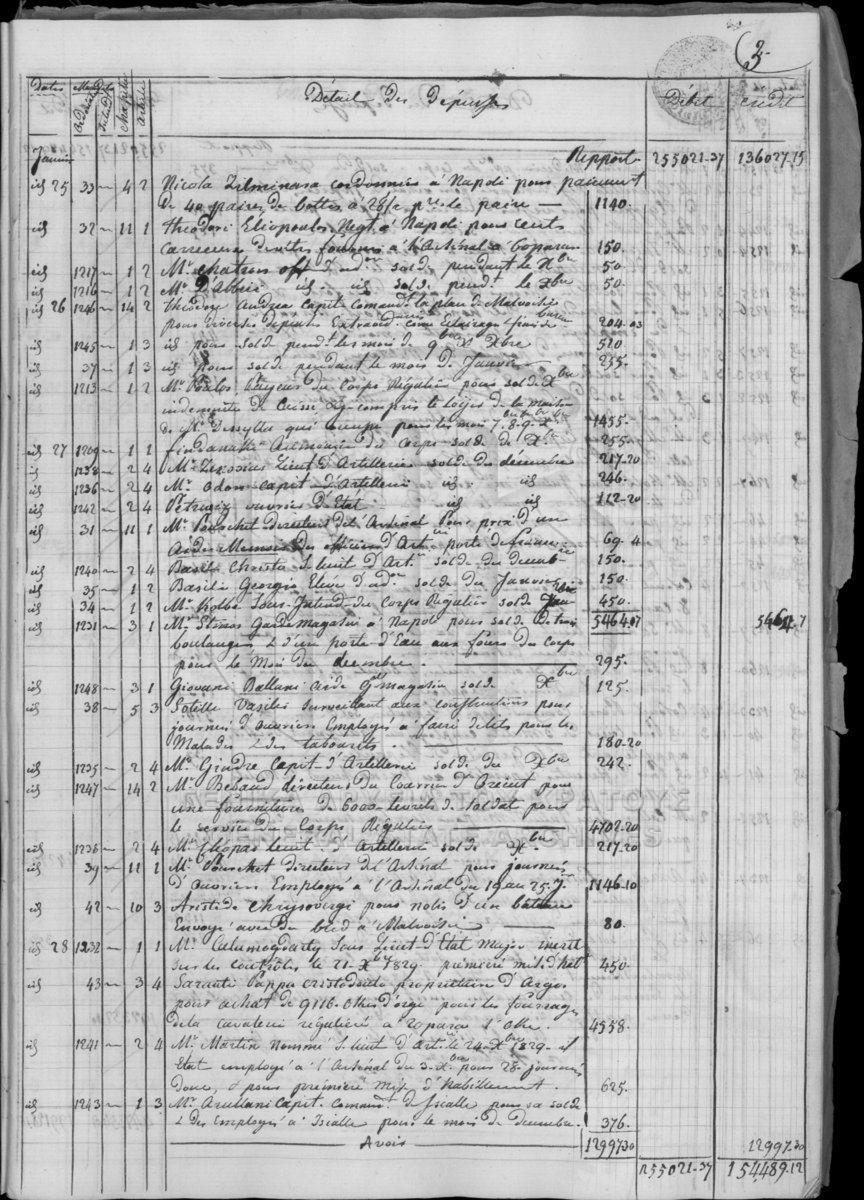 3
Dates Mandats Chapitre Article Détail des Dépenses Débit Crédit
Janvier Report 255021.37 136027.15
id 25 33 — 4 2 Nicola cordonnier à Napoli pour paiement
de 40 paires de bottes à 28½ prs. la paire — 1140.
id 32 — 11 1 Théodore Eliopoulos Negt. à Napoli pour cents
fournis à l'Arsenal à 60 paras 150.
id 1217 — 1 2 Mr. Chatron offr. d'adon. solde pendant le Xbre 50
id 1216 — 1 2 Mr. D'abbrie id id solde pendt. le Xbre 50.
id 26 1246 — 14 2 Théodore Andrea Capit. Comandt. la place de Malvoisie
pour diverses dépenses Extraord. come éclairage frais de bureau 204.03
id 1245 — 1 3 id pour solde pendt. les mois de 9bre & Xbre 510
id 37 — 1 3 id pour solde pendant le mois de Janvier 255.
id 1213 — 1 2 Mr. Poulos Payeur du Corps Régulier pour solde Xbre
indemnité de Caisse & y compris le loyer de la maison
de Mr. qui occupe pour les mois 7. 8. 9. Xbre 1455.
id 27 1209 — 1 1 du Corps solde de Xbre 255
id 1238 — 2 4 Mr. Lieut. d'Artillerie solde de décembre 217.20
id 1236 — 2 4 Mr. Odon capit. d'Artillerie id id 246.
id 1242 — 2 4 ouvrier d'Etat id id 112.20
id 31 — 11 1 Mr. Pourchet directeur de l'Arsénal Pour prix d'un
Aide Mémoire des officiers d'Artie. porte de france 69.4
id 1240 — 2 4 Basile Christo S. lieut d'Artie. solde du decembre 150.
id 35 — 1 2 Basilio Georgio Eleve d'adon. solde du Janvier 150.
id 34 — 1 2 Mr. Kolbe Sous-Intend. du Corps Régulier solde Xbre 450
id 1231 — 3 1 Mr. Stinos Gardemagasin à Napol pour solde de trois 5464.07 5464.7
boulangers & d'un porte d'Eau aux fours du Corps
pour le Mois du decembre. 295.
id 1248 — 3 1 Giovani Ballani aide g. magasin solde Xbre 125.
id 38 — 5 3 Sotille Vasilis Surveillant aux constructions pour
journées d'ouvriers Employés à faire de lits pour les
Malades & des tabourets. 180.20
id 1235 — 2 4 Mr. Giudre Capit. d'Artillerie solde du Xbre 242.
id 1247 — 14 2 Mr. Bebaud directeur du Courrier d'Orient pour
une fourniture de 6000 livrets de soldat pour
le service du Corps Régulier 4702.20
id 1236 — 2 4 Mr. lieut. d'Artillerie solde Xbre 217.20
id 39 — 11 1 Mr. Pourchet directeur de l'Arsénal pour journées
d'ouvriers Employés à l'Arsénal du 19 au 25. Jer 1146.10
id 42 — 10 3 Aristide Chrysovergi pour nolis d'un bateau
Envoyé avec du bled à Malvoisie 80.
id 28 1232 — 1 1 Mr. Calamogdarty Sous Lieut d'Etat Major inscrit
sur les contrôles le 21 Xbre 1829. première mise d'habt. 450.
id 43 — 3 4 Saranti Pappa Cristodoulo propriétaire d'Argos
pour achat de 9116 okes d'orge pour les fourrages
de la cavalerie régulière à 20 paras l'oke. 4558.
id 1241 — 2 4 Mr. Martin nommé S. lieut d'Artie le 24 Xbre 1829. il
Etat employé à l'Arsénal du 3. Xbre pour 28. journées
Donc, & pour première mise d'habillement. 625.
id 1243 — 1 3 Mr. Capit. commt. d'Iscalle pour sa solde
& des Employés à Iscalle pour le mois de decembre. 376.
Avoir 12997.30 12997.30
255021.37 154,489.12